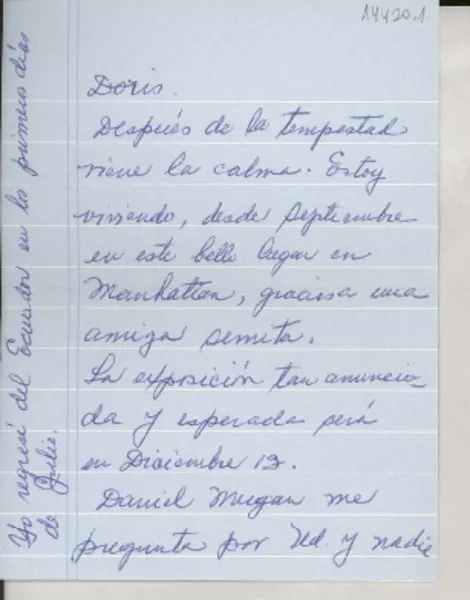 14420.1
Doris.
Después de la tempestad
viene la calma. Estoy
viviendo, desde Septiembre
en este bello lugar en
Manhattan, gracias a una
amiga semita.
La exposición tan anuncia-
da y esperada será
en Diciembre 12.
Daniel me
pregunta por Ud. y nadie
Yo regresé del Ecuador en los primeros días
de Julio.